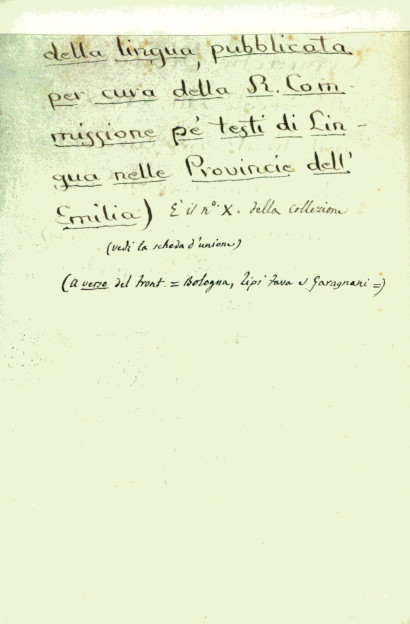 della lingua, pubblicata
per cura della R. Com-
missione pé testi di Lin-
gua nelle Provincie dell'
Emilia) È il nº. X. della collezione
(vedi la scheda d'unione)
(a verso del front. = Bologna, Tipi Fava e Garagnani =)